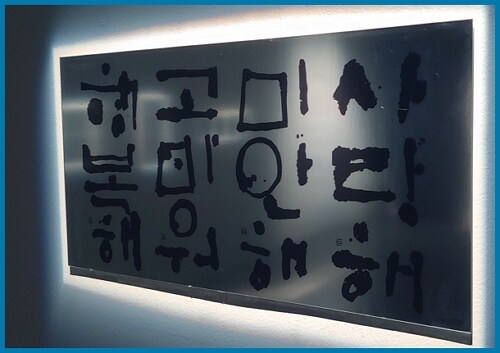 사랑해
미안해
고마워
행복해